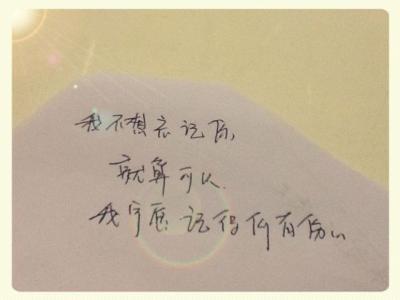 我不想忘记你,
就算可以.
我宁愿记得所有伤。